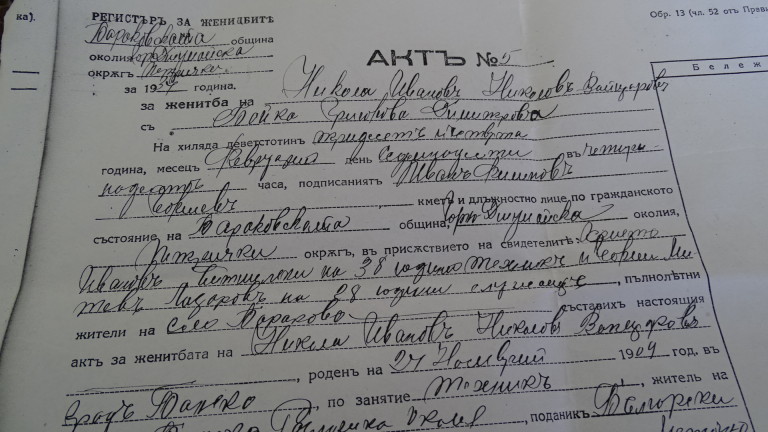 ка).
РЕГИСТЪРЪ ЗА ЖЕНИДБИТѢ
Бараковската община
околия Горно Джумайска
окржгъ Петрички
за 1934 година.
Обр. 13 (чл. 52 отъ Прави
АКТЪ № 5
Б е л е ж
за женитба на Никола Ивановъ Николовъ Вапцаровъ
съ Бойка Димитрова
На хиляда деветстотинъ тридесетъ и четвърта
година, месецъ Февруарий день въ четири-
надесеть часа, подписаниятъ Иванъ Филиповъ
, кметъ и длъжностно лице по гражданското
състояние на Бараковската община, Горно Джумайска околия,
Петрички окржгъ, въ присѫтствието на свидетелитѣ: Христо
Ивановъ на 38 години техникъ и
Лазаровъ на 28 години , пълнолѣтни
жители на Село Бараково съставихъ настоящия
актъ за женитбата на Никола Ивановъ Николовъ Вапцаровъ
, роденъ на 24 Ноемврий 1909 год. въ
градъ Банско , по занятие техникъ , жителъ на
, поданикъ Български